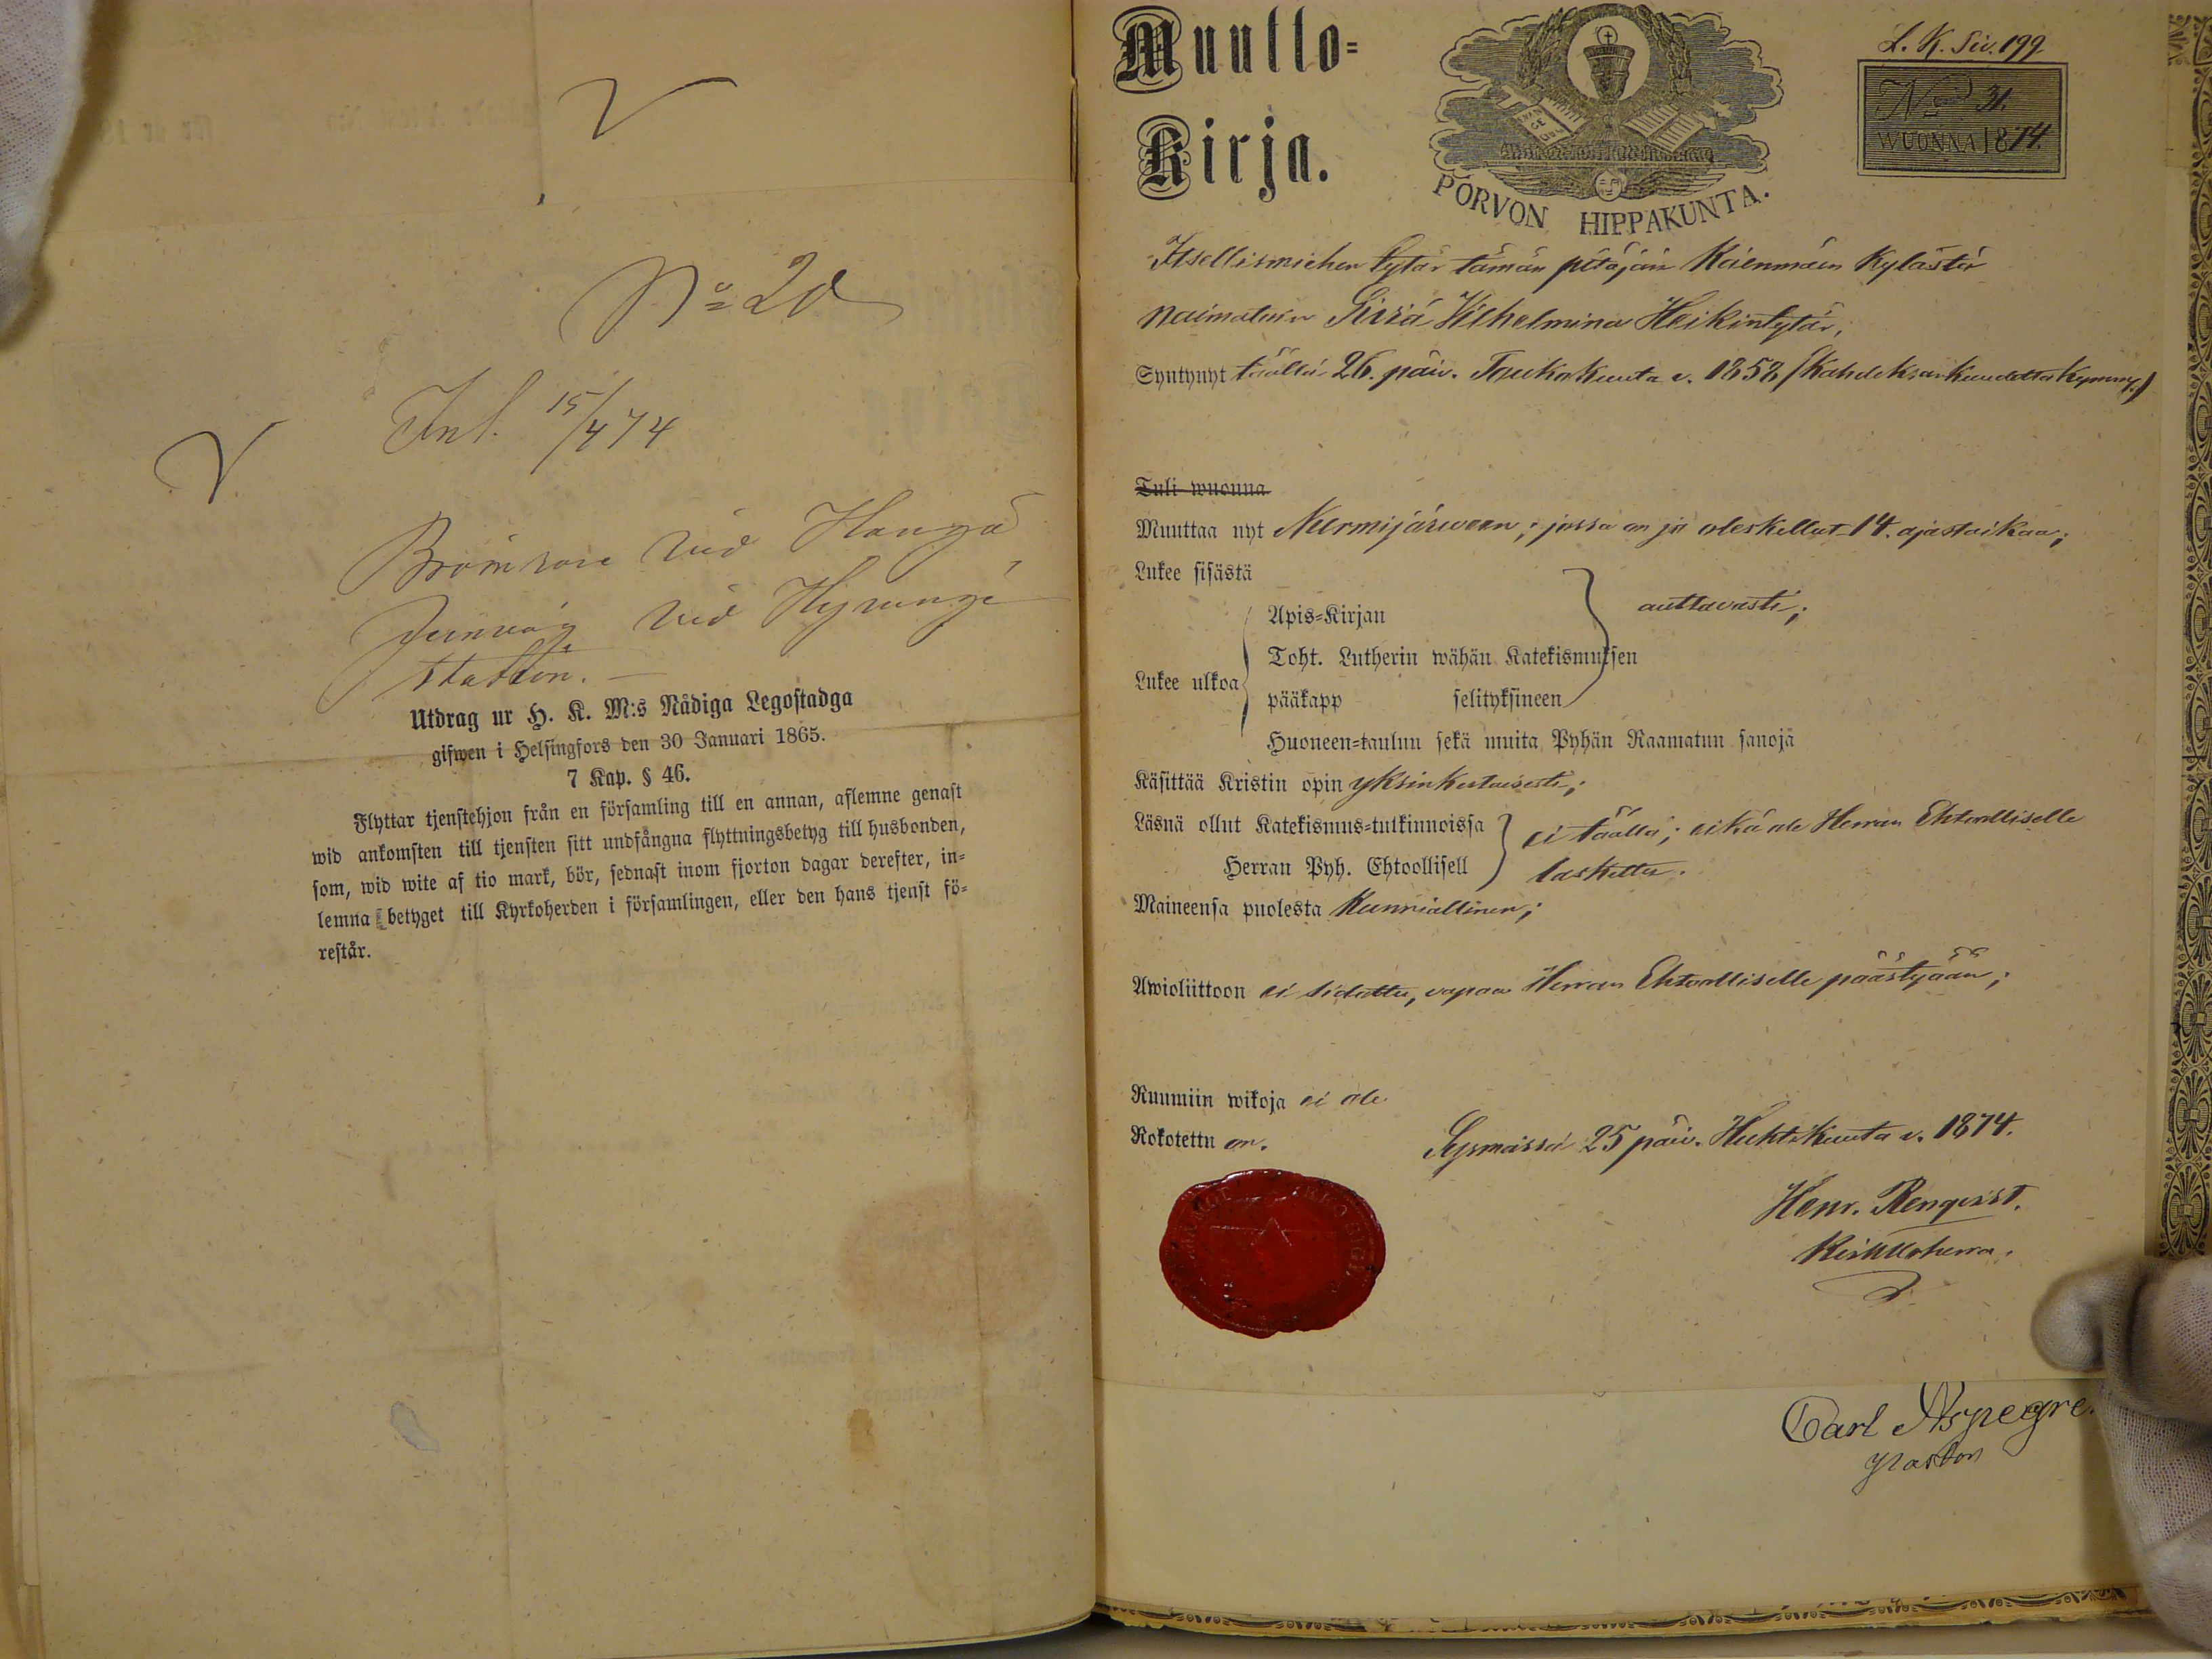 No 20
Inl. 15/4 74
vid Hangö
Jernväg vid Hyvinge
station.
Utdrag ur H. K. M:s Nådiga Legostadga
gifwen i Helsingfors den 30 Januari 1865.
7 Kap. § 46.
Flyttar tjenstehjon från en församling till en annan, aflemne genast
wid ankomsten till tjensten sitt undfångna flyttningsbetyg till husbonden,
som, wid wite af tio mark, bör, sednast inom fjorton dagar derefter, in=
lemna betyget till Kyrkoherden i församlingen, eller den hans tjenst fö=
restår.
Muutto=
Kirja.
PORVON HIPPAKUNTA.
L. K. Siv. 199
No 31.
WUONNA 1874.
Itsellismiehen tytär tämän pitäjän Käenmäen Kylästä
naimatoin Siviä Wilhelmina Heikintytär,
Syntynyt täällä 26. päiv. Toukokuuta v. 1858 (Kahdeksankuudettakymm.)
Tuli wuonna
Muuttaa nyt Nurmijärween, jossa on jo oleskellut 14. ajastaikaa;
Lukee sisästä
Apis=Kirjan auttavasti;
Toht. Lutherin wähän Katekismuksen
Lukee ulkoa
pääkapp selityksineen
Huoneen=taulun sekä muita Pyhän Raamatun sanoja
Käsittää Kristin opin yksinkertaisesti;
Läsnä ollut Katekismus=tutkinnoissa ei täällä; eikä ole Herran Ehtoolliselle
Herran Pyh. Ehtoollisell laskettu.
Maineensa puolesta Kunniallinen;
Awioliittoon ei sidottu, vapaa Herran Ehtoolliselle päästyään;
Ruumiin wikoja ei ole
Rokotettu on. Sysmässä 25 päiv. Huhtikuuta v. 1874.
Henr. Renqvist.
Kirkkoherra.
Carl Aspegre
pastor